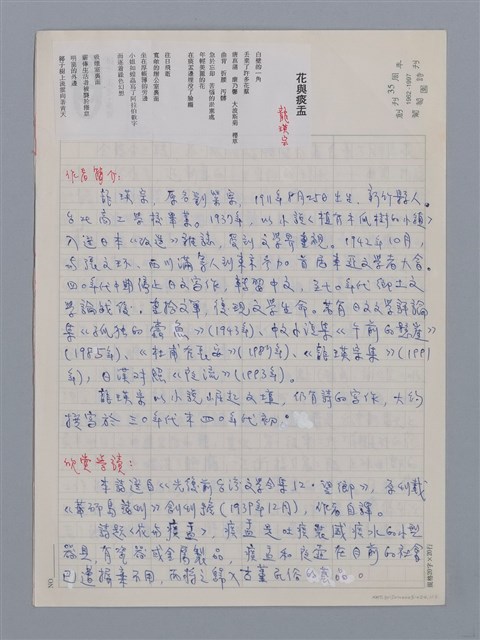 創刊35周年
1962-1997
葡萄園詩刊
花與痰盂
龍瑛宗
白壁的一角
丟棄了許多花瓣
在痰盂邊埋沒了臉龐
往日時光
寬敞的辦公室裏面
坐在厚帳簿的旁邊
作者簡介:
龍瑛宗,原名劉榮宗,1911年8月25日出生,新竹縣人。
台北商工學校畢業。1937年,以小說《植有木瓜樹的小鎮》
入選日本《改造》雜誌,受到文學界重視。1942年10月,
與張文環、西川滿等人到東京參加首屆東亞文學者大會。
四〇年代中期停止日文寫作,轉習中文,至七〇年代鄉土文
學論戰後,重拾文筆,復現文學生命。著有日文文學評論
集《孤獨的蠹魚》(1943年)、中文小說集《午前的懸崖》
(1985年)、《杜甫在長安》(1987年)、《龍瑛宗集》(1991
年),日漢對照《夜流》(1993年)。
龍瑛宗以小說崛起文壇,仍有詩的寫作,大約
撰寫於三〇年代末四〇年代初。
欣賞導讀:
本詩選自《光復前台灣文學全集12·望鄉》,原刊載
《華麗島詩刊》創刊號(1939年12月),作者自譯。
詩題〈花與痰盂〉,痰盂是吐痰裝盛痰水的小型
器具,有瓷器或金屬製品,痰盂和痰盂在目前的社會
已遭摒棄不用,而將之歸入古董民俗的商品。
NO.